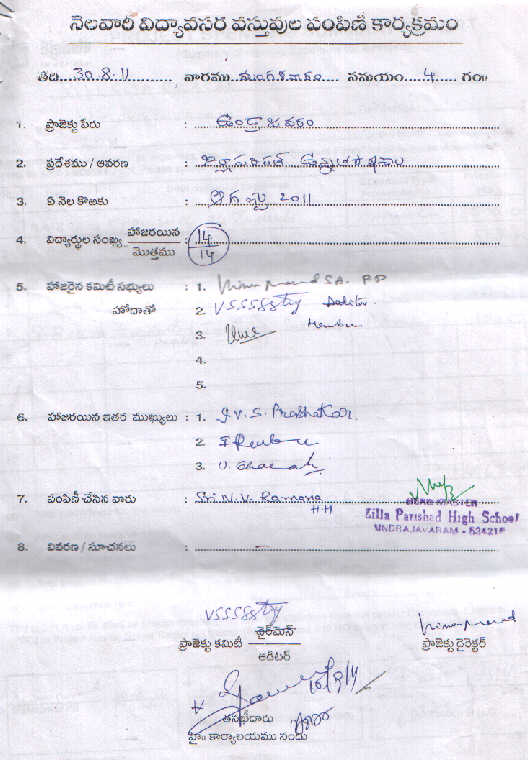 నెలవారీ విద్యావసర వస్తువుల పంపిణీ కార్యక్రమం
తేది... 30.8.11 .......... వారము మంగళవారం ..... సమయం.... 4 .... గం॥
1. ప్రాజెక్టు పేరు : ఉండ్రాజవరం
2. ప్రదేశము / ఆవరణ : జిల్లా పరిషత్ ఉన్నత పాఠశాల
3. ఏ నెల కొఱకు : ఆగష్టు 2011
4. విద్యార్థుల సంఖ్య హాజరయిన / మొత్తము : 14/14
5. హాజరైన కమిటీ సభ్యులు : 1. SA. PD
హోదాతో 2. VSSSSSty
3. Member
4.
5.
6. హాజరయిన ఇతర ముఖ్యులు : 1. J.V.S. Prabhakar
2.
3.
7. పంపిణీ చేసిన వారు : Sri N.V. Ramana
HM
HEAD MASTER
Zilla Parishad High School
UNDRAJAVARAM - 534216
8. వివరణ / సూచనలు :
VSSSSSty
ప్రాజెక్టు కమిటీ చైర్‌మెన్ / ఆడిటర్
ప్రాజెక్టు డైరెక్టర్
10/9/11
తనఖీదారు
హై॥ కార్యాలయము నందు